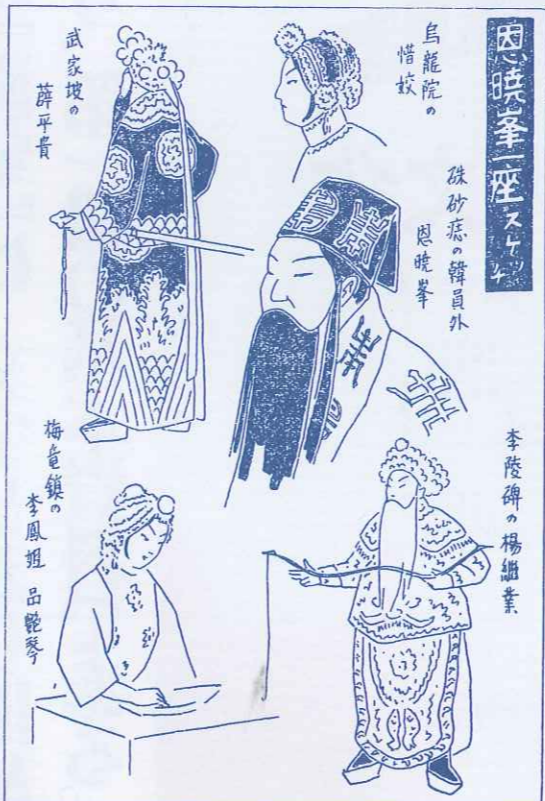 恩暁峯一座スケッチ
烏龍院の
惜姣
硃砂痣の韓員外
恩暁峯
武家坡の
薛平貴
李陵碑の楊継業
梅竜鎮の
李鳳姐 品艶琴